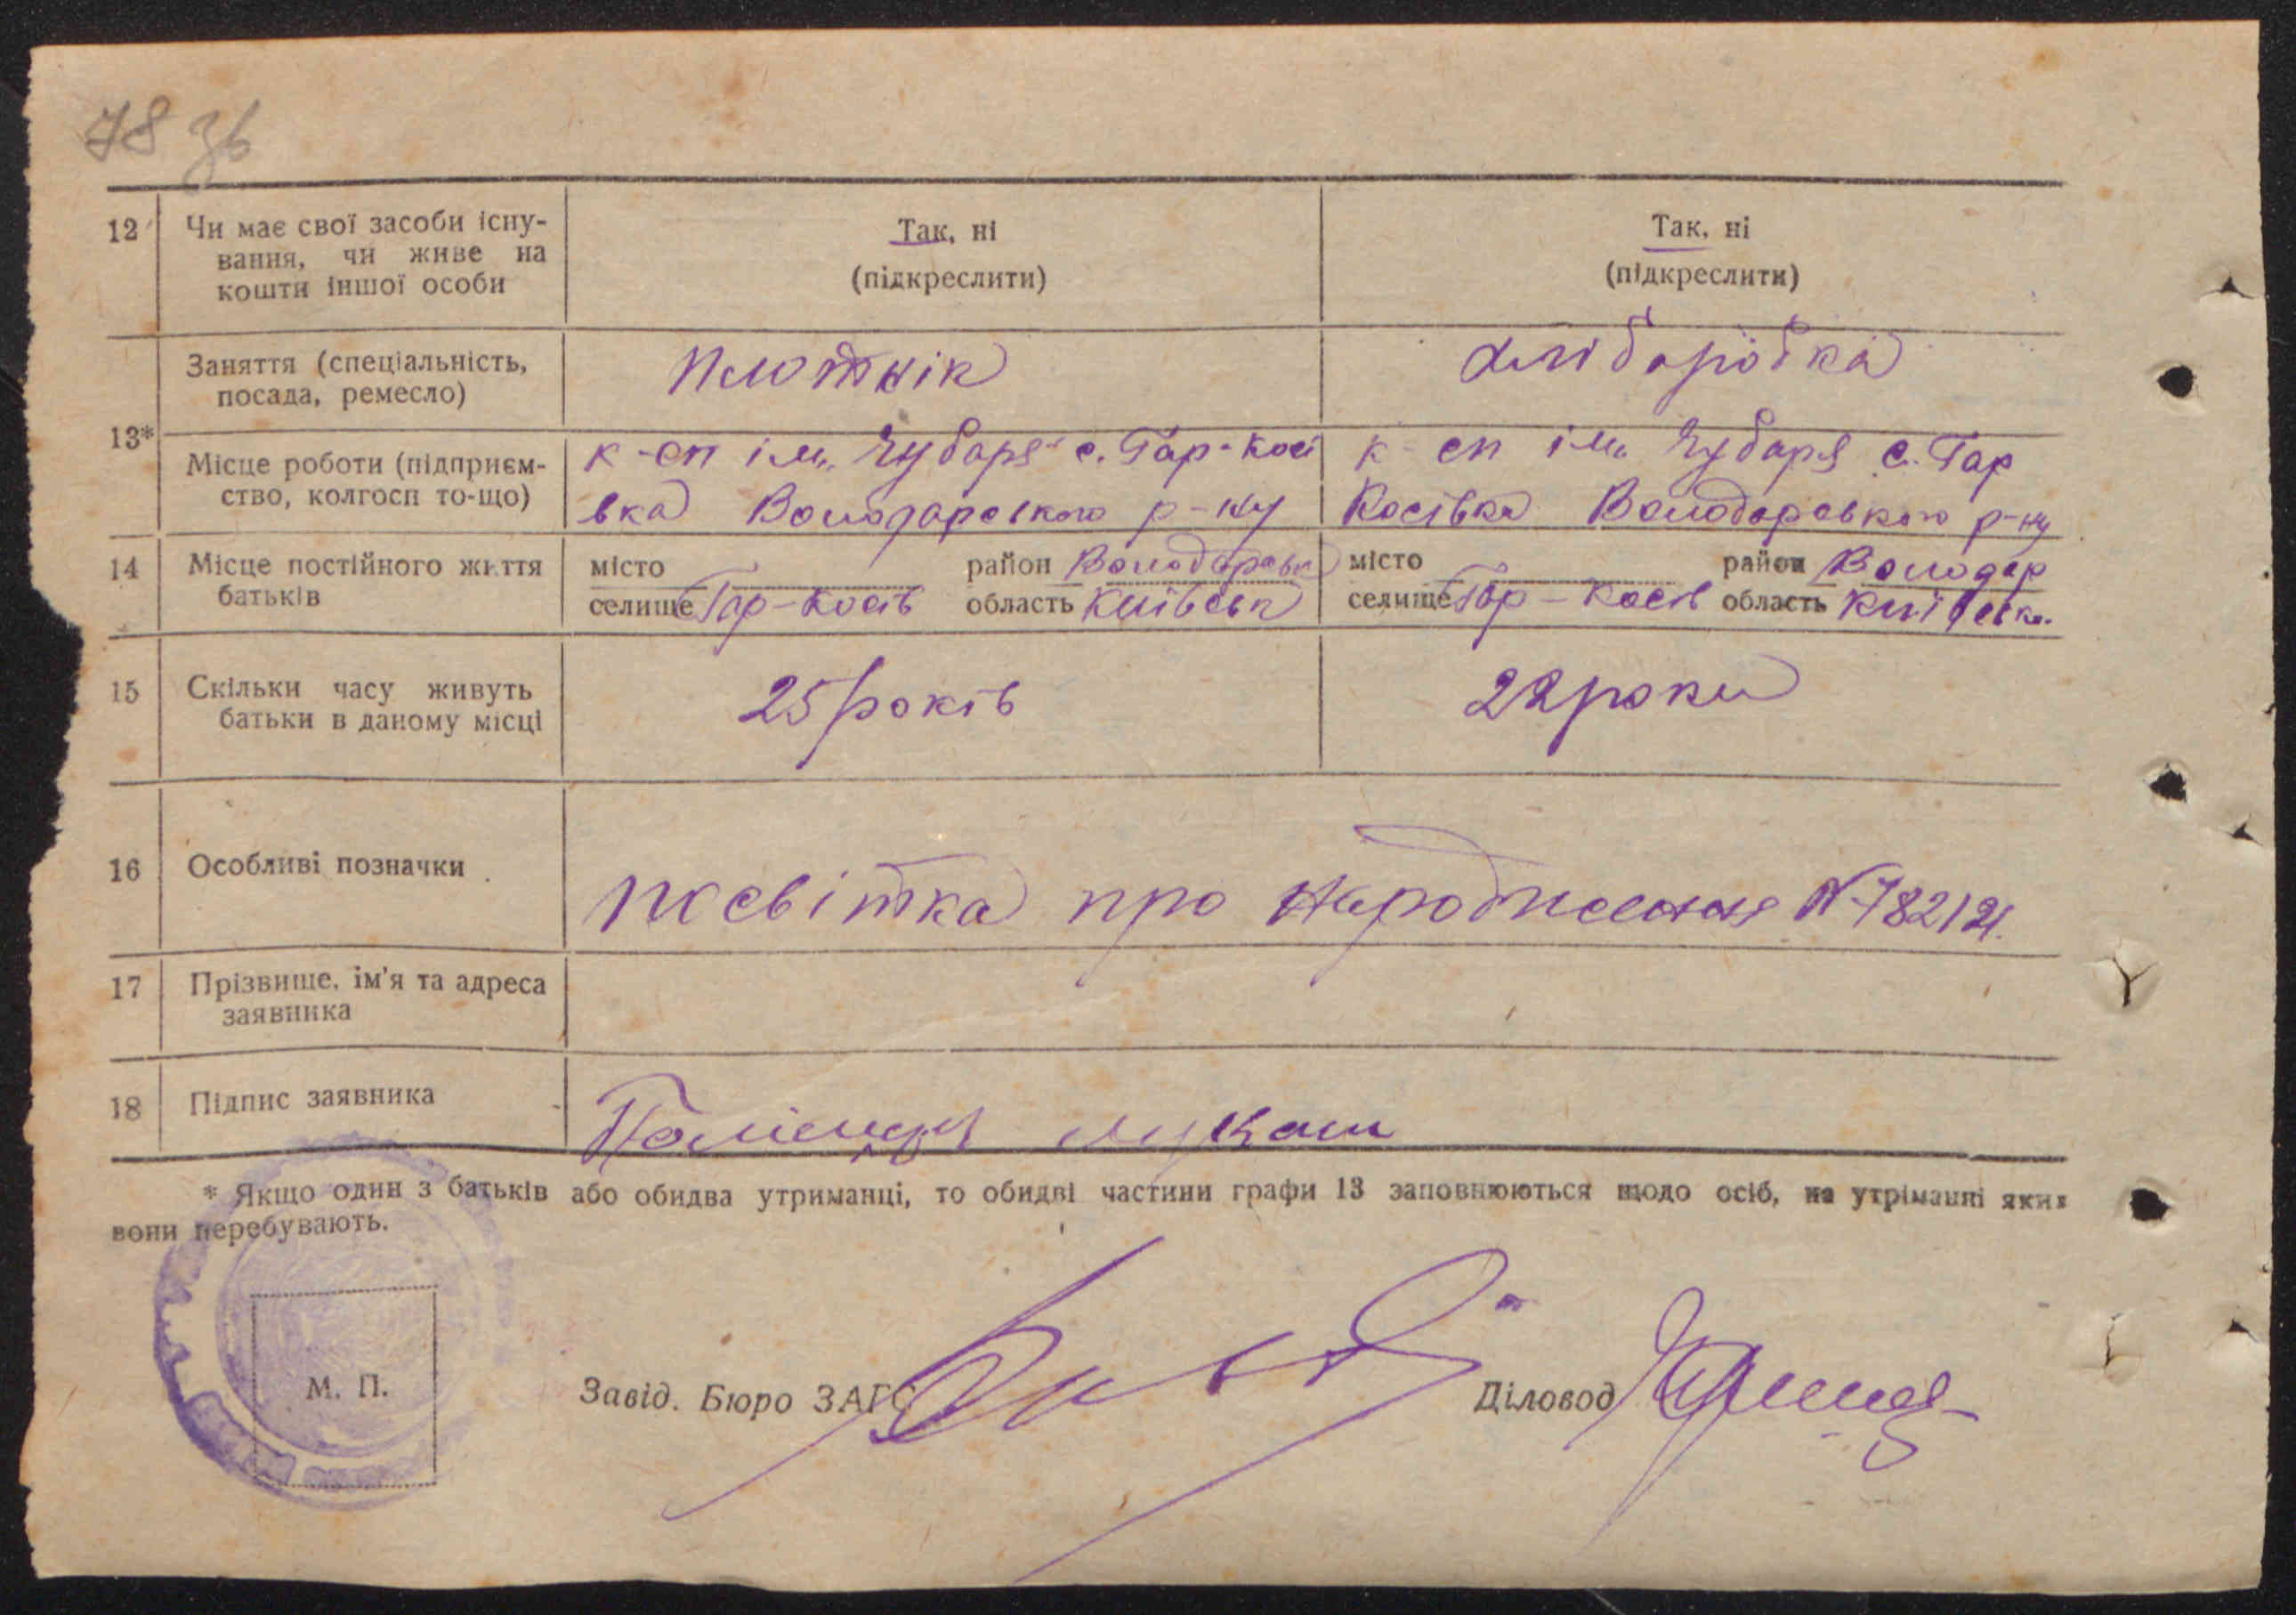 78 зв
12 Чи має свої засоби існу-
вання, чи живе на
кошти іншої особи
Так, ні
(підкреслити)
Так, ні
(підкреслити)
13*
Заняття (спеціальність,
посада, ремесло)
Плотнік
хліборобка
Місце роботи (підприєм-
ство, колгосп то-що)
к-сп ім. Чубаря с. Гар-Косі
вка Володарського р-ну
к-сп ім. Чубаря с. Гар
Косівка Володарського р-ну
14 Місце постійного життя
батьків
місто район Володарськ
селище Гар-Косів область Київськ
місто район Володар
селище Гар-Косів область Київськ.
15 Скільки часу живуть
батьки в даному місці
25 років
22 роки
16 Особливі позначки
посвітка про народження № 78212
17 Прізвище, ім'я та адреса
заявника
18 Підпис заявника
лукаш
* Якщо один з батьків або обидва утриманці, то обидві частини графи 13 заповнюються щодо осіб, на утріманні яких
вони перебувають.
М. П.
Завід. Бюро ЗАГС
Діловод